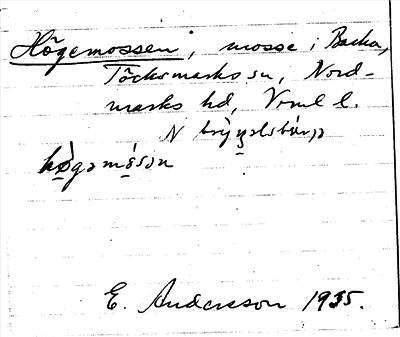 Högemossen, mosse i Backa,
Töcksmarks sn, Nord-
marks hd, Vrml l.
N
høgəmósən
E. Andersson 1935.